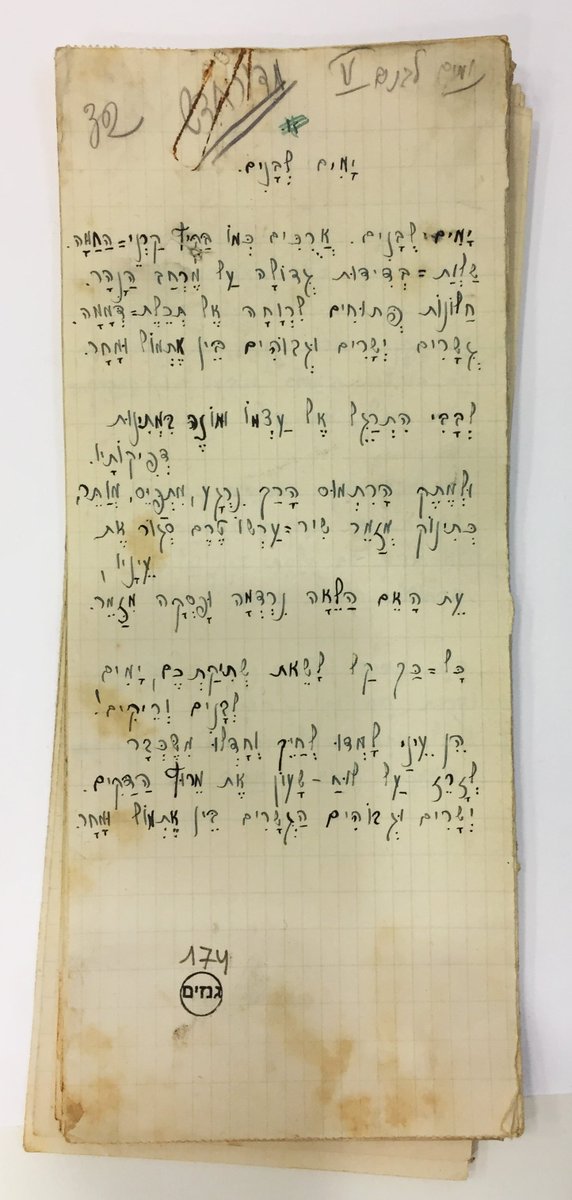 ימים לבנים V
32
יָמִים לְבָנִים.
יָמִים לְבָנִים. אֲרֻכִּים כְּמוֹ בַּקַּיִץ קַרְנֵי=הַחַמָּה.
שַׁלְוַת=בְּדִידוּת גְדוֹלָה עַל מֶרְחַב הַנָּהָר.
חַלּוֹנוֹת פְּתוּחִים לִרְוָחָה אֶל תְּכֵלֶת=דְּמָמָה.
גְּשָׁרִים יְשָׁרִים וּגְבוֹהִים בֵּין אֶתְמוֹל וּמָחָר.
לְבָבִי הִתְרַגֵּל אֶל עַצְמוֹ וּמוֹנֶה בִּמְתִינוּת
דְּפִיקוֹתָיו.
וּלְמֶתֶק הָרִתְמוּס הָרַךְ נִרְגָּע, מִתְפַּיֵּס, מְוַתֵּר,
כְּתִינוֹק מְזַמֵּר שִׁיר=עַרְשׂוֹ טֶרֶם סְגוֹר אֶת
עֵינָיו,
עֵת הָאֵם הַלֵּאָה נִרְדְּמָה וּפָסְקָה מִזַּמֵּר.
כָּל=כַּךְ קַל לָשֵׂאת שְׁתִיקַתְכֶם, יָמִים
לְבָנִים וְרֵיקִים!
הֵן עֵינַי לָמְדוּ לְחַיֵּךְ וְחָדְלוּ מִשֶּׁכְּבָר
לְזָרֵז עַל לוּחַ-שָׁעוֹן אֶת מֵרוֹץ הַדַּקִּים.
יְשָׁרִים וּגְבוֹהִים הַגְּשָׁרִים בֵּין אֶתְמוֹל וּמָחָר.
174
גנזים